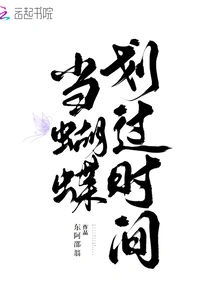 云起书院
当蝴蝶
划过时间
东阿部翁
作品